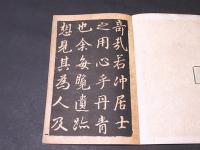 奇哉若沖居士
之用心乎丹青
也余每覽遺跡
想見其為人及